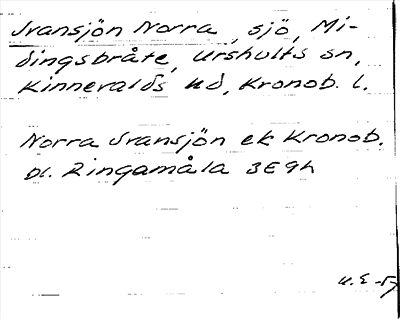 Svansjön Norra, sjö, Mi-
dingsbråte, Urshults sn,
Kinnevalds hd, Kronob. l.
Norra Svansjön ek Kronob.
bl. Ringamåla 3E9h